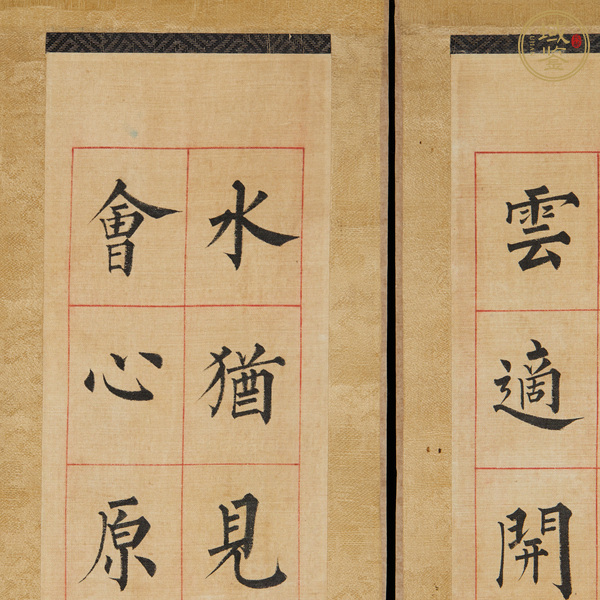 雲適開
水猶見
會心原